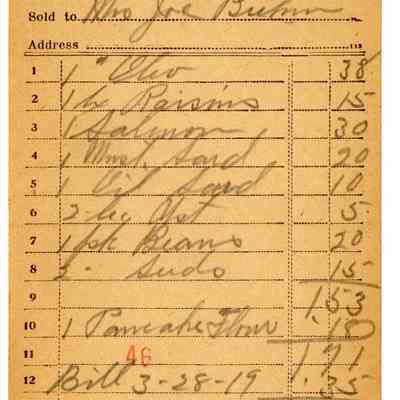 Sold to Mrs Joe Buehm
Address
1 1 " Oleo 38
2 1 bx Raisins 15
3 1 Salmon 30
4 1 Must. Sard 20
5 1 Oil Sard 10
6 2 5
7 1 pk Beans 20
8 3 - Suds 15
9 1.53
10 1 Pancake Flour .18
11 46 1 71
12 Bill 3-28-19 .35